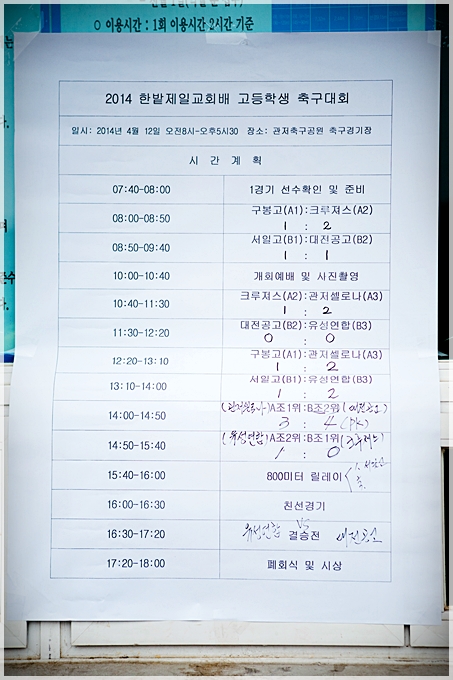 ○ 이용시간 : 1회 이용시간 2시간 기준
2014 한밭제일교회배 고등학생 축구대회
일시: 2014년 4월 12일 오전8시-오후5시30 장소: 관저축구공원 축구경기장
시 간 계 획
07:40-08:00 1경기 선수확인 및 준비
08:00-08:50 구봉고(A1):크루져스(A2)
1 : 2
08:50-09:40 서일고(B1):대전공고(B2)
1 : 1
10:00-10:40 개회예배 및 사진촬영
10:40-11:30 크루저스(A2):관저셀로나(A3)
1 : 2
11:30-12:20 대전공고(B2):유성연합(B3)
0 : 0
12:20-13:10 구봉고(A1):관저셀로나(A3)
1 : 2
13:10-14:00 서일고(B1):유성연합(B3)
1 : 2
14:00-14:50 (관저셀로나)A조1위:B조2위(대전공고)
3 : 4 (PK)
14:50-15:40 (유성연합)A조2위:B조1위
1 : 0
15:40-16:00 800미터 릴레이
16:00-16:30 친선경기
16:30-17:20 유성연합 VS 결승전 대전공고
17:20-18:00 폐회식 및 시상